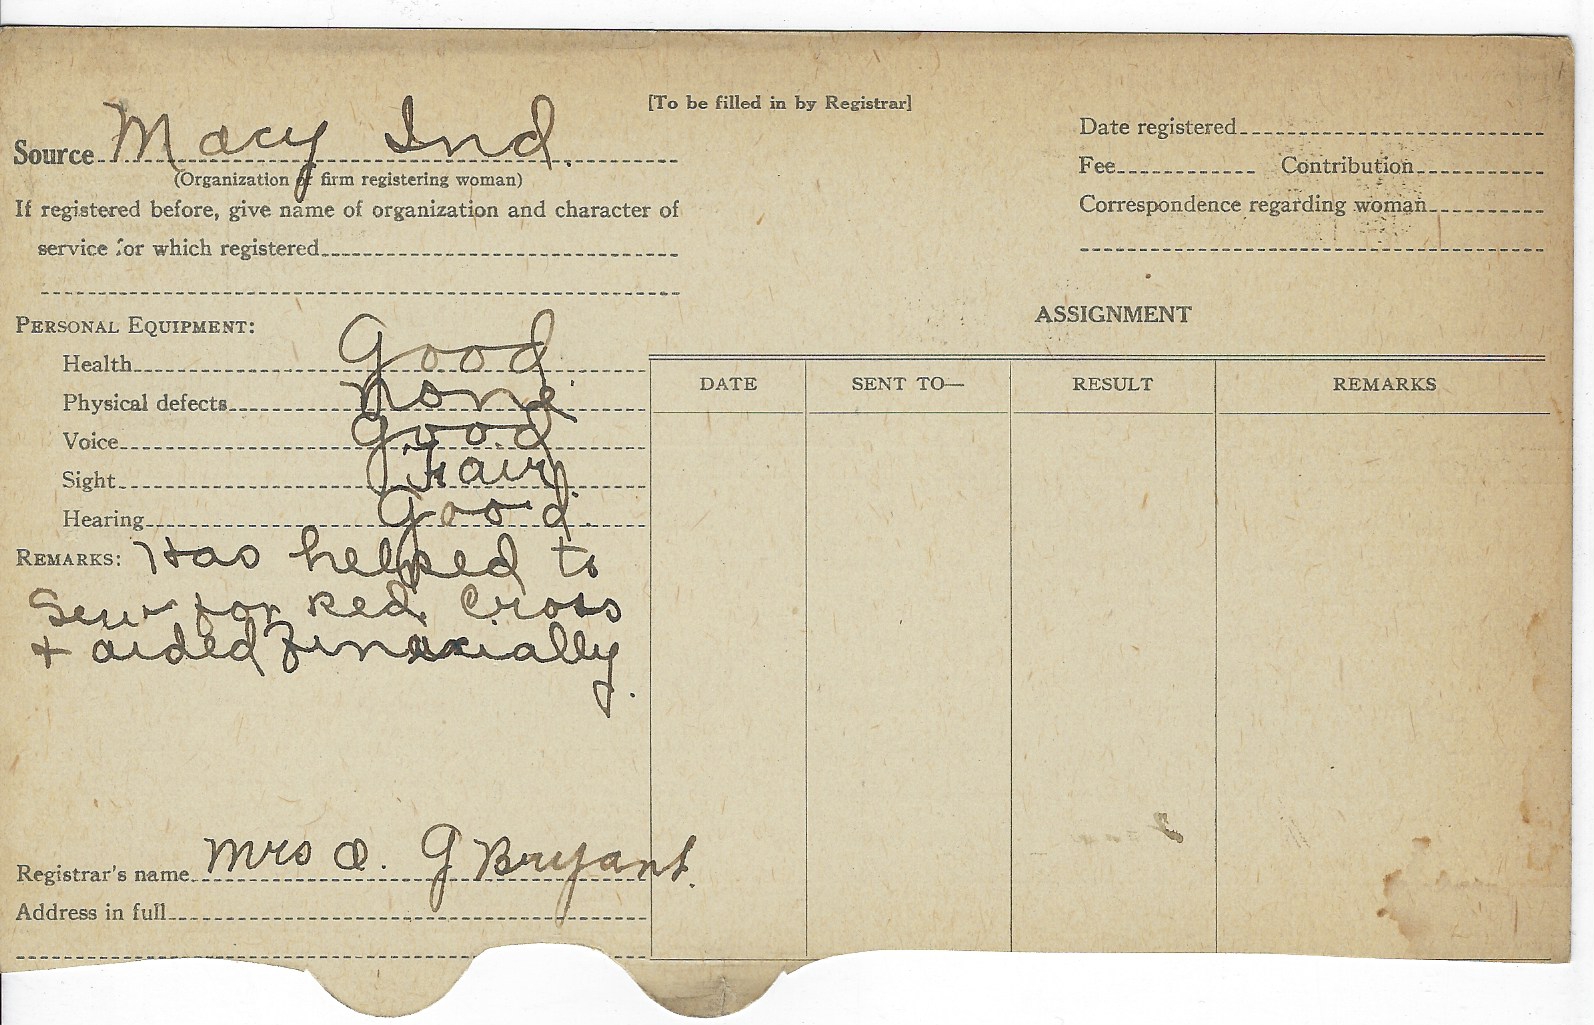 [To be filled in by Registrar]
Source Macy Ind.
(Organization or firm registering woman)
If registered before, give name of organization and character of
service for which registered
Date registered
Fee Contribution
Correspondence regarding woman
PERSONAL EQUIPMENT:
Health Good
Physical defects none
Voice Good
Sight Fair.
Hearing Good.
REMARKS: Has helped to
Sew for Red Cross
+ aided Finaxially.
Registrar's name Mrs O. G Bryant.
Address in full
ASSIGNMENT
DATE SENT TO— RESULT REMARKS